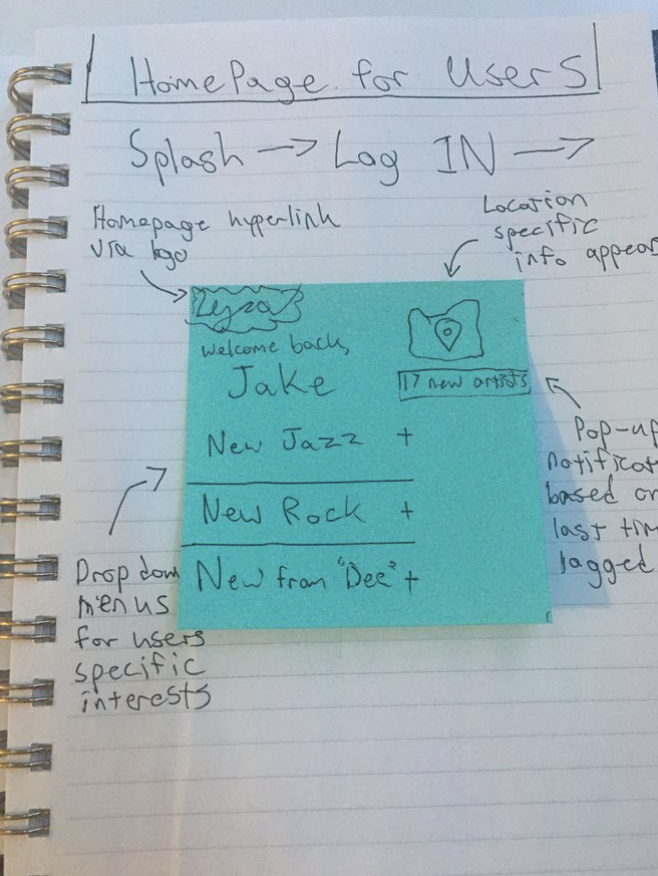 HomePage for Users
Splash → Log IN →
Homepage hyperlink
via logo
Location
specific
info appears
Welcome back,
Jake
17 new artists
New Jazz +
New Rock +
New from "Dee" +
Pop-up
based on
last
logged
Drop down
menus
for users
specific
interests